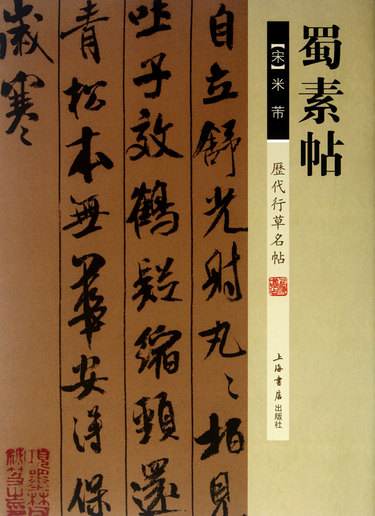 蜀素帖
【宋】米芾
歷代行草名帖
上海書店出版社
自立舒光射丸〻柏見
吐子效鶴疑縮頸還
青松本無華安得保
歲寒〻